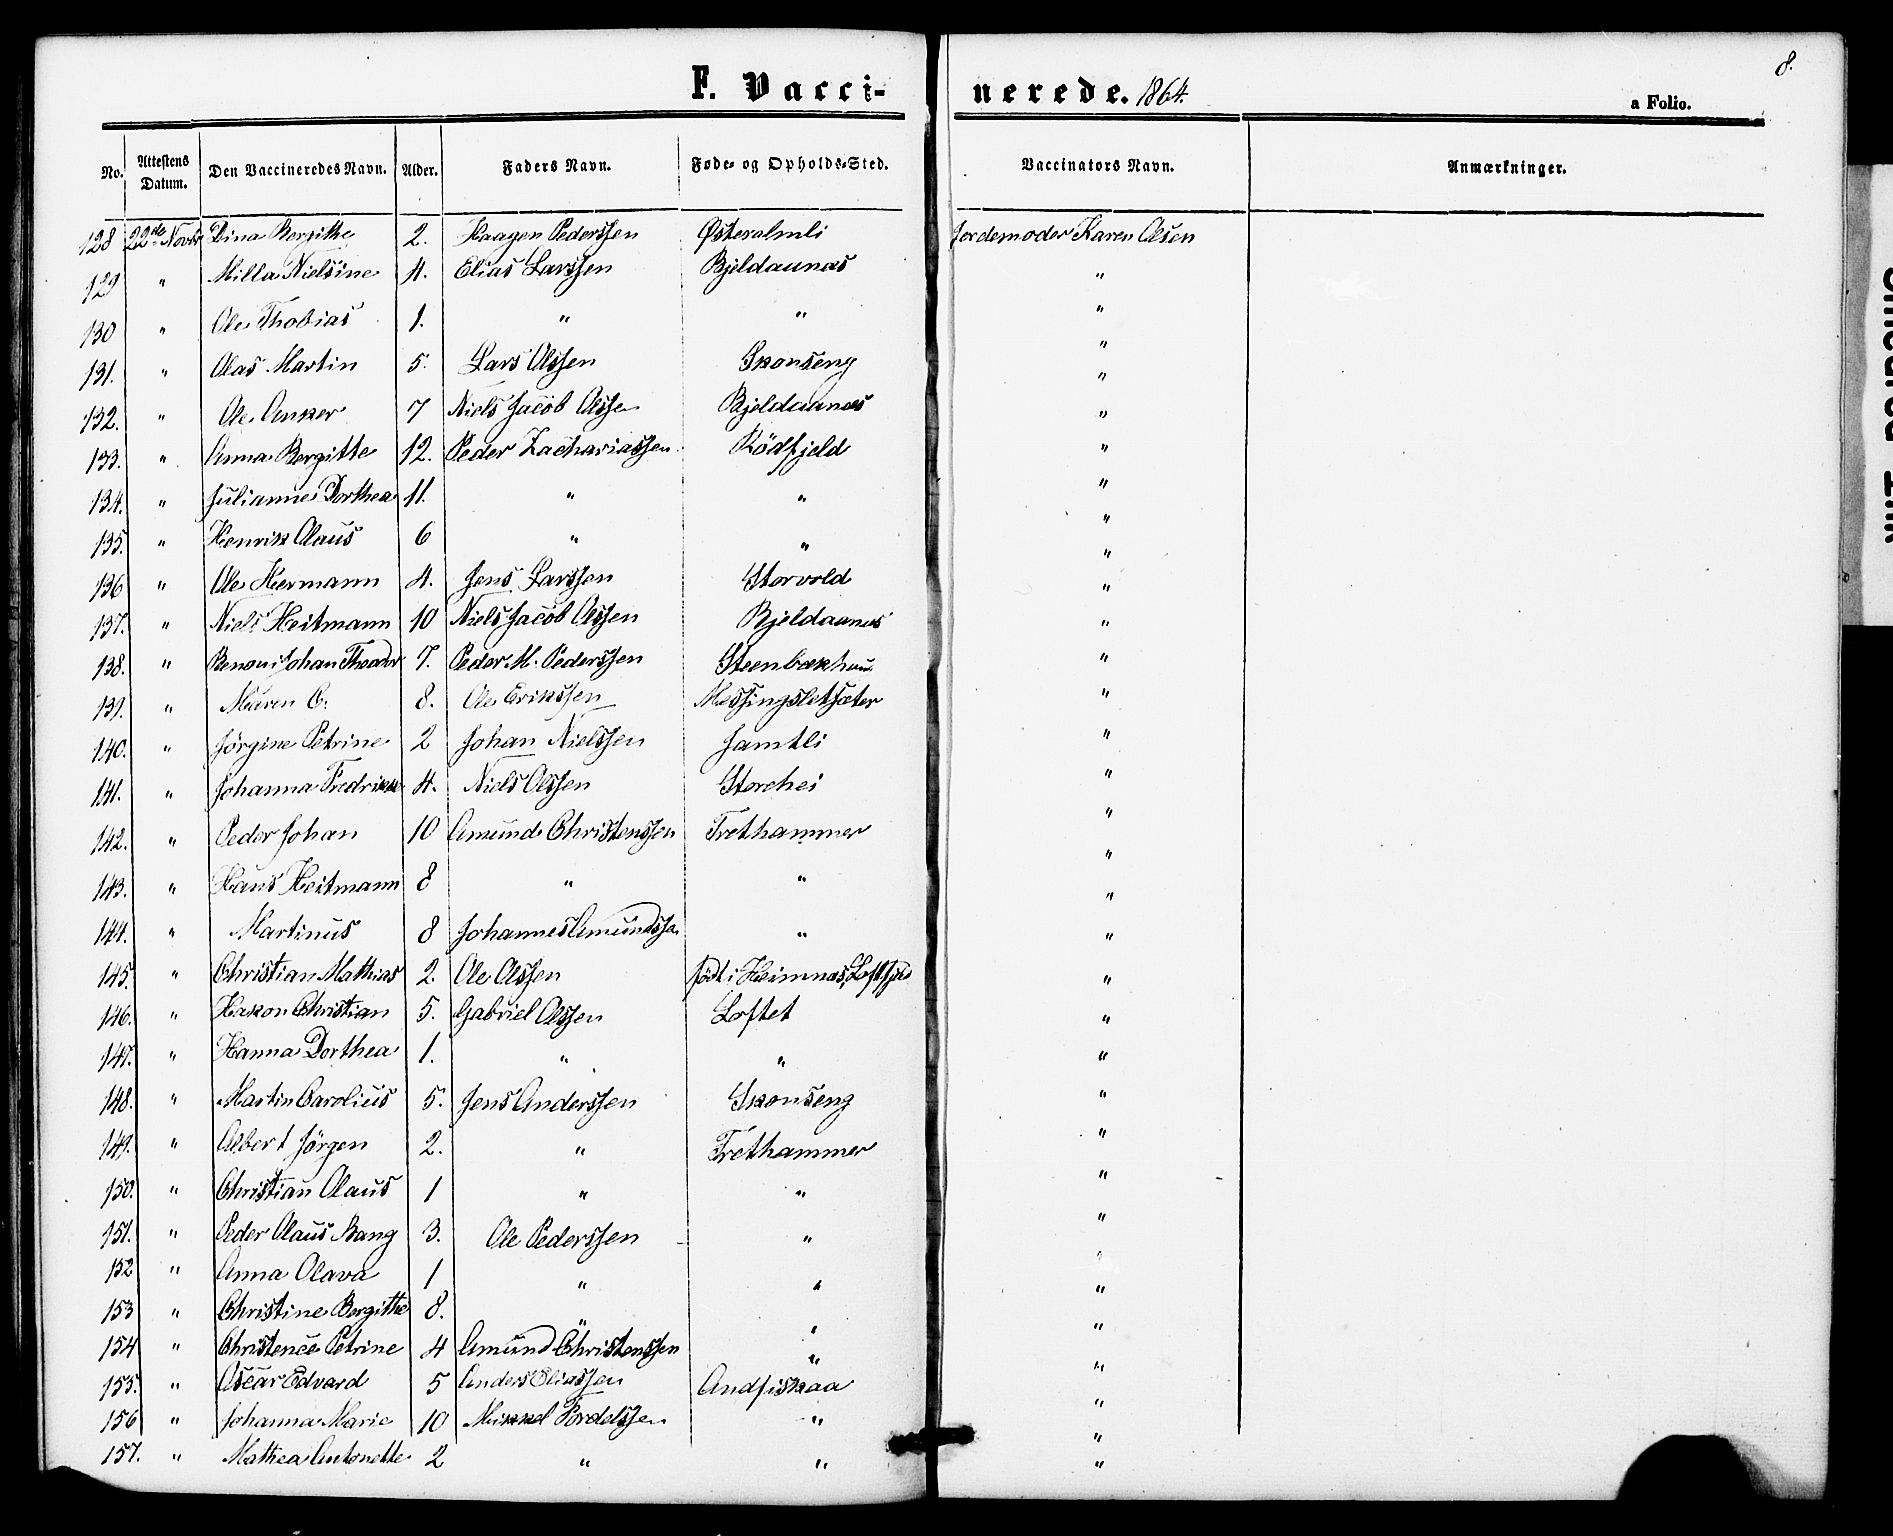 8.
F. Vacci-nerede. 1864.
a Folio.
No. Attestens Datum. Den Vaccineredes Navn. Alder. Faders Navn. Føde- og Opholds-Sted. Vaccinators Navn. Anmærkninger.
128 22de Novbr Dina Bergitte 2. Haagen Pederssen Østeralmli Jordemoder Karen Olsen
129 " Milla Nielsine 4. Elias Larssen Bjeldaanæs "
130 " Ole Thobias 1. " " "
131. " Olas Martin 5. Lars Olssen Skonseng "
132. " Ole Anker 7 Niels Jacob Olssen Bjeldaanæs "
133. " Anna Bergitte 12. Peder Zachariassen Rödfjeld "
134. " Julianne Dorthea 11. " " "
135. " Henrik Olaus 6 " " "
136 " Ole Hermann 4. Jens Larssen Storvold "
137. " Niels Heitmann 10 Niels Jacob Olssen Bjeldaanæs "
138. " Benoni Johan Theodor 7. Peder M. Pederssen Steenbækhau "
139. " Maren C. 8. Ole Erikssen Messingsletsæter "
140. " Jörgine Petrine 2 Johan Nielssen Jamtli "
141. " Johanna Fredrikke 4. Niels Olssen Storehei "
142. " Peder Johan 10 Amund Christenssen Trethammer "
143. " Hans Heitmann 8 " " "
144. " Martinus 8 Johannes Amundssen " "
145. " Christian Mathias 2. Ole Olssen født i Heimnæs, Loftfjeld "
146. " Hakon Christian 5. Gabriel Olssen Loftet "
147. " Hanna Dorthea 1. " " "
148. " Martin Carolius 5. Jens Anderssen Skonseng "
149. " Albert Jörgen 2. " Trethammer "
150. " Christian Olaus 1 " " "
151. " Peder Olaus Bang 3. Ole Pederssen " "
152 " Anna Olava 1 " " "
153 " Christine Bergitte 8. " " "
154 " Christence Petrine 4 Amund Christenssen " "
155. " Oscar Edvard 5 Anders Eliassen Andfiskaa "
156 " Johanna Marie 10 Mikkel Tordelssen " "
157. " Mathea Antonette 2 " " "